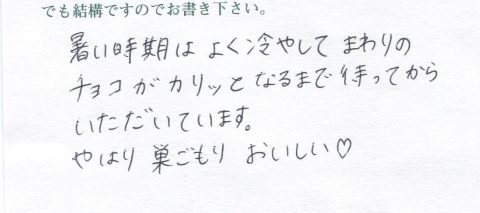 でも結構ですのでお書き下さい。
暑い時期は よく冷やして まわりの
チョコが カリッと なるまで 待ってから
いただいています。
やはり 巣ごもり おいしい♡